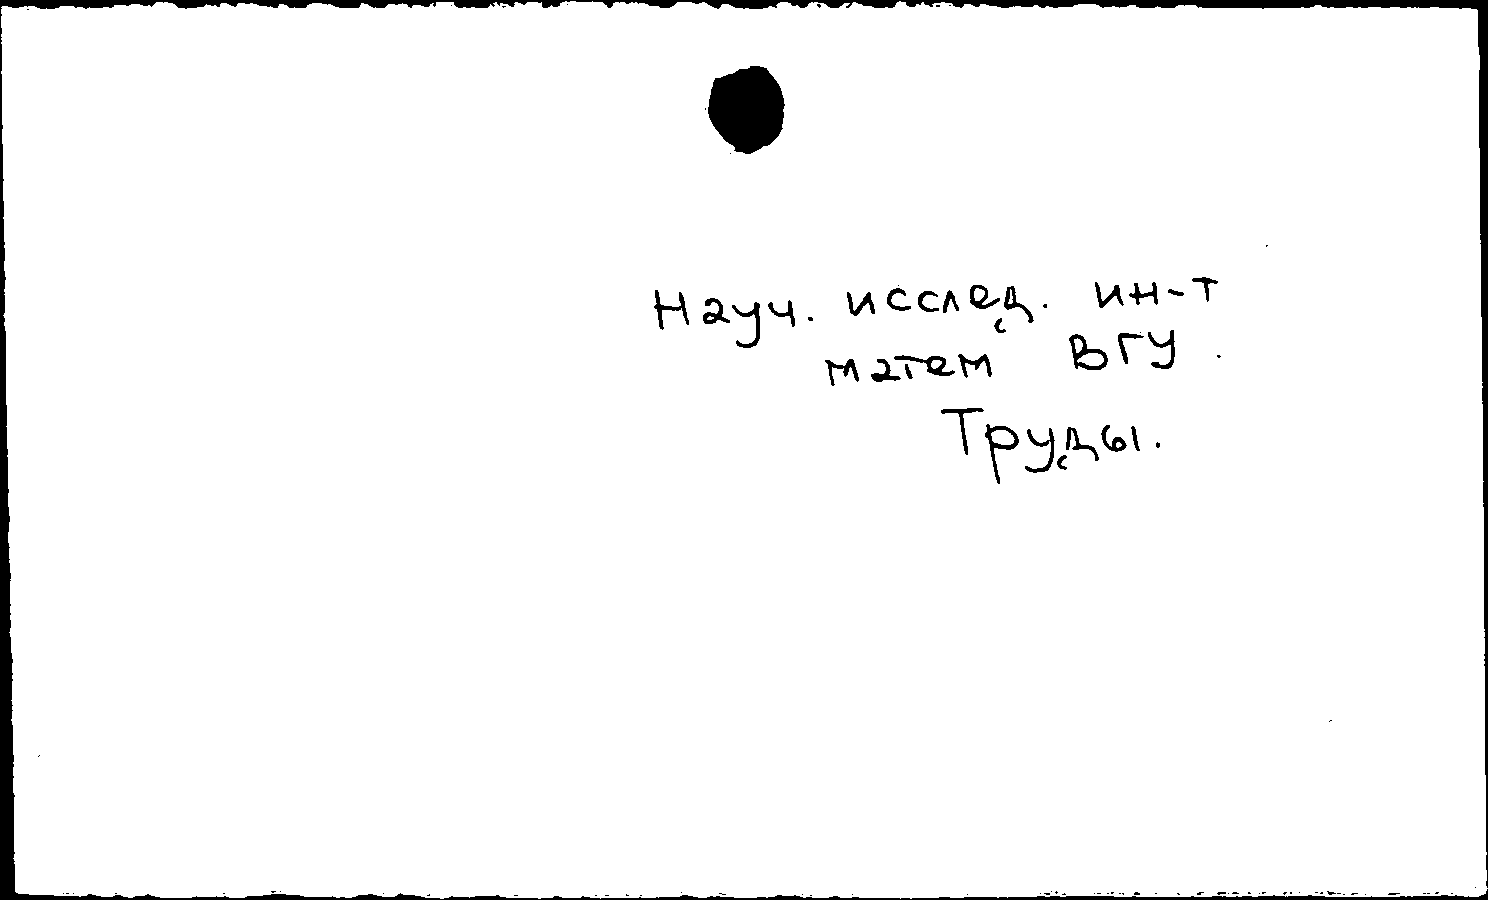 Науч. исслед. ин-т
матем ВГУ.
Труды.